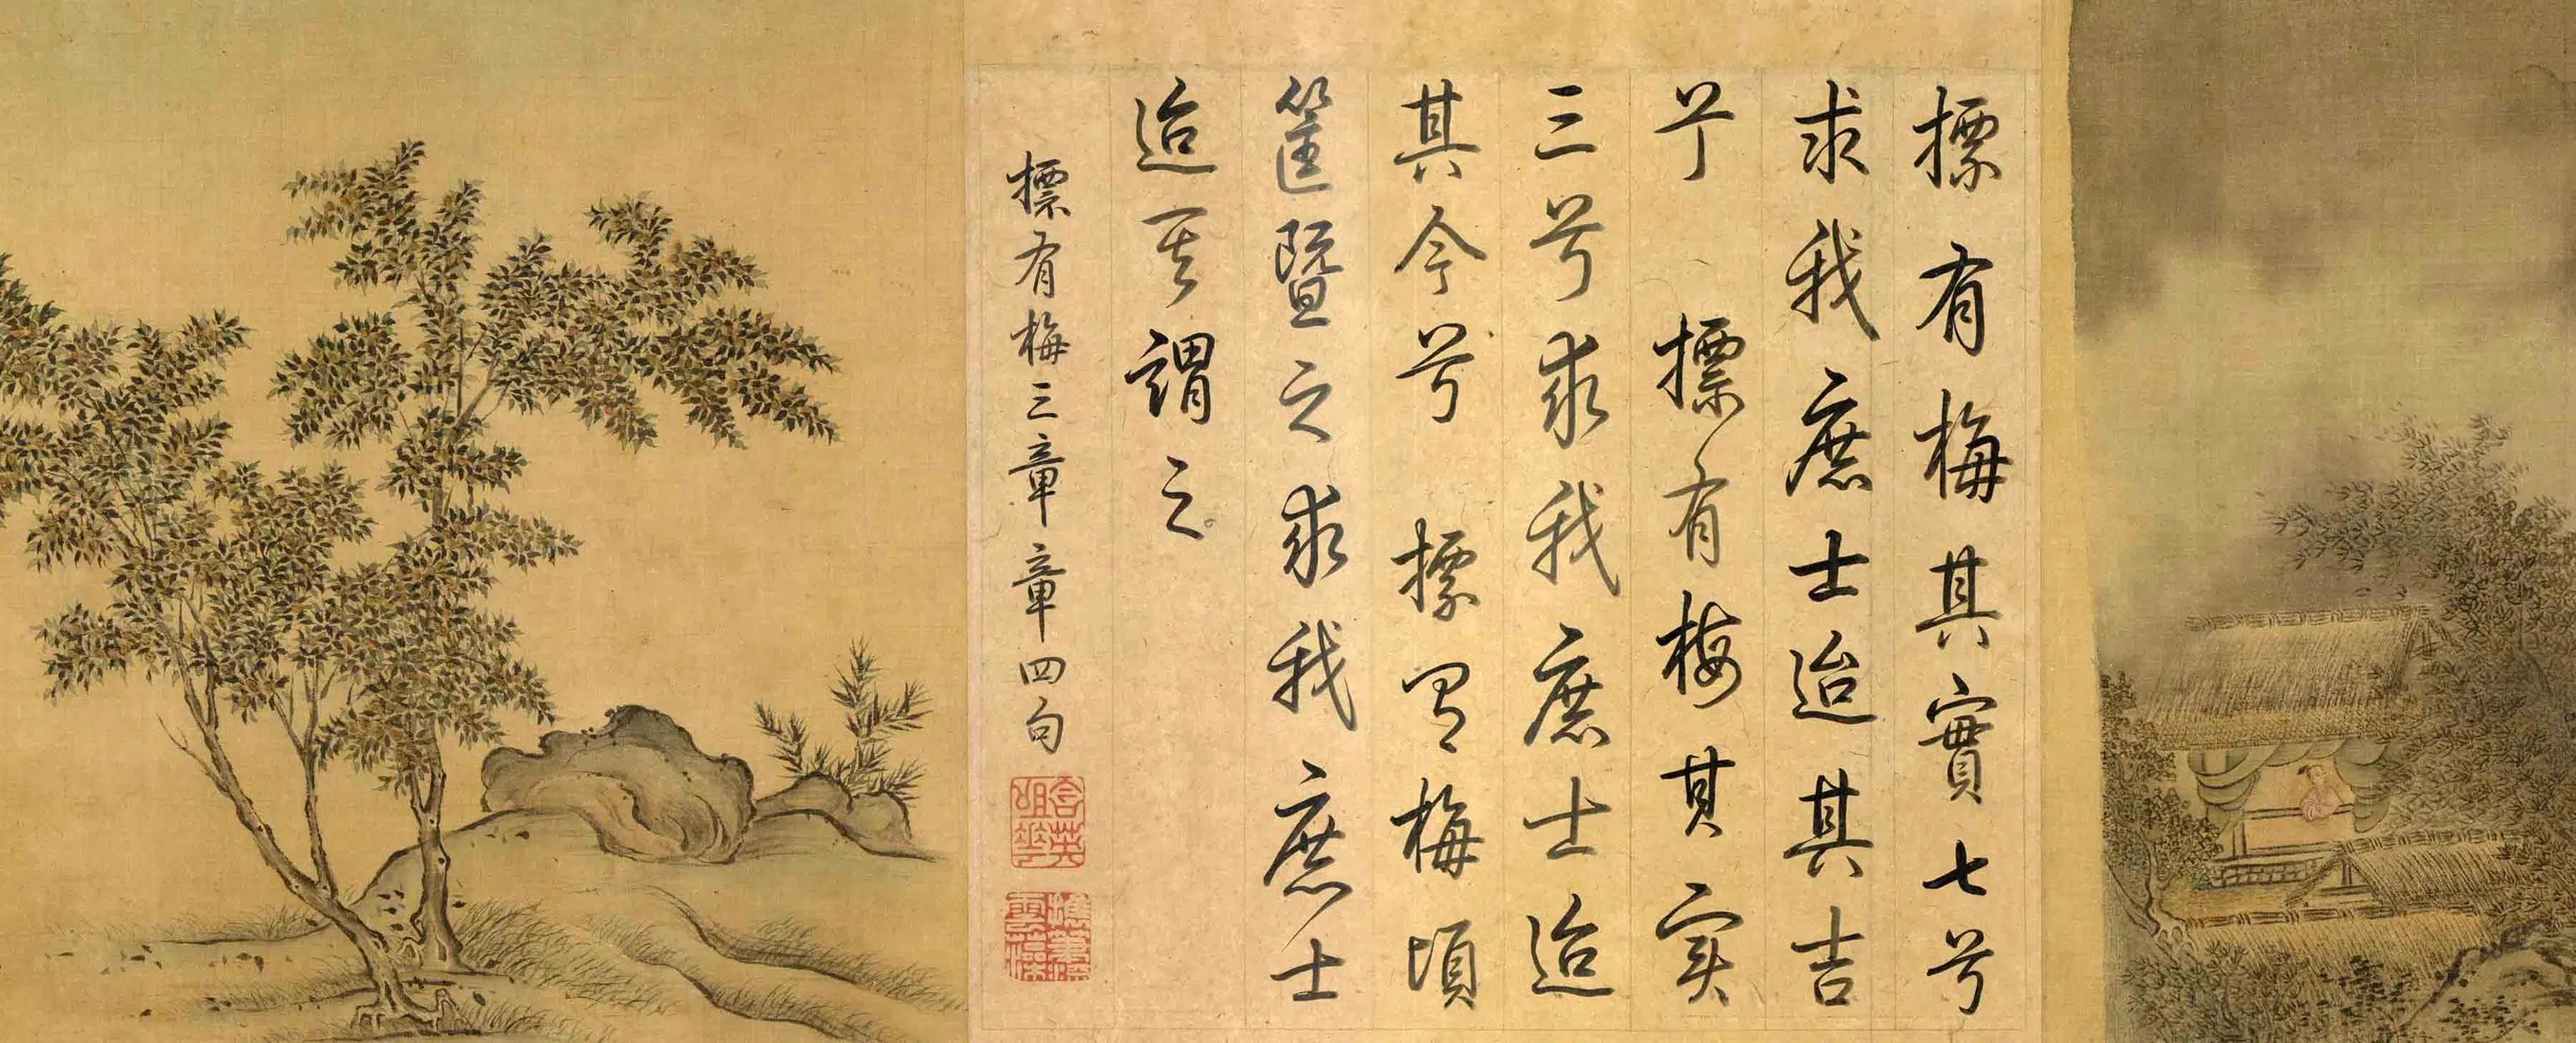 摽有梅其實七兮
求我庶士迨其吉
兮　摽有梅其实
三兮求我庶士迨
其今兮　摽有梅頃
筐暨之求我庶士
迨其謂之
摽有梅三章章四句
含英咀華